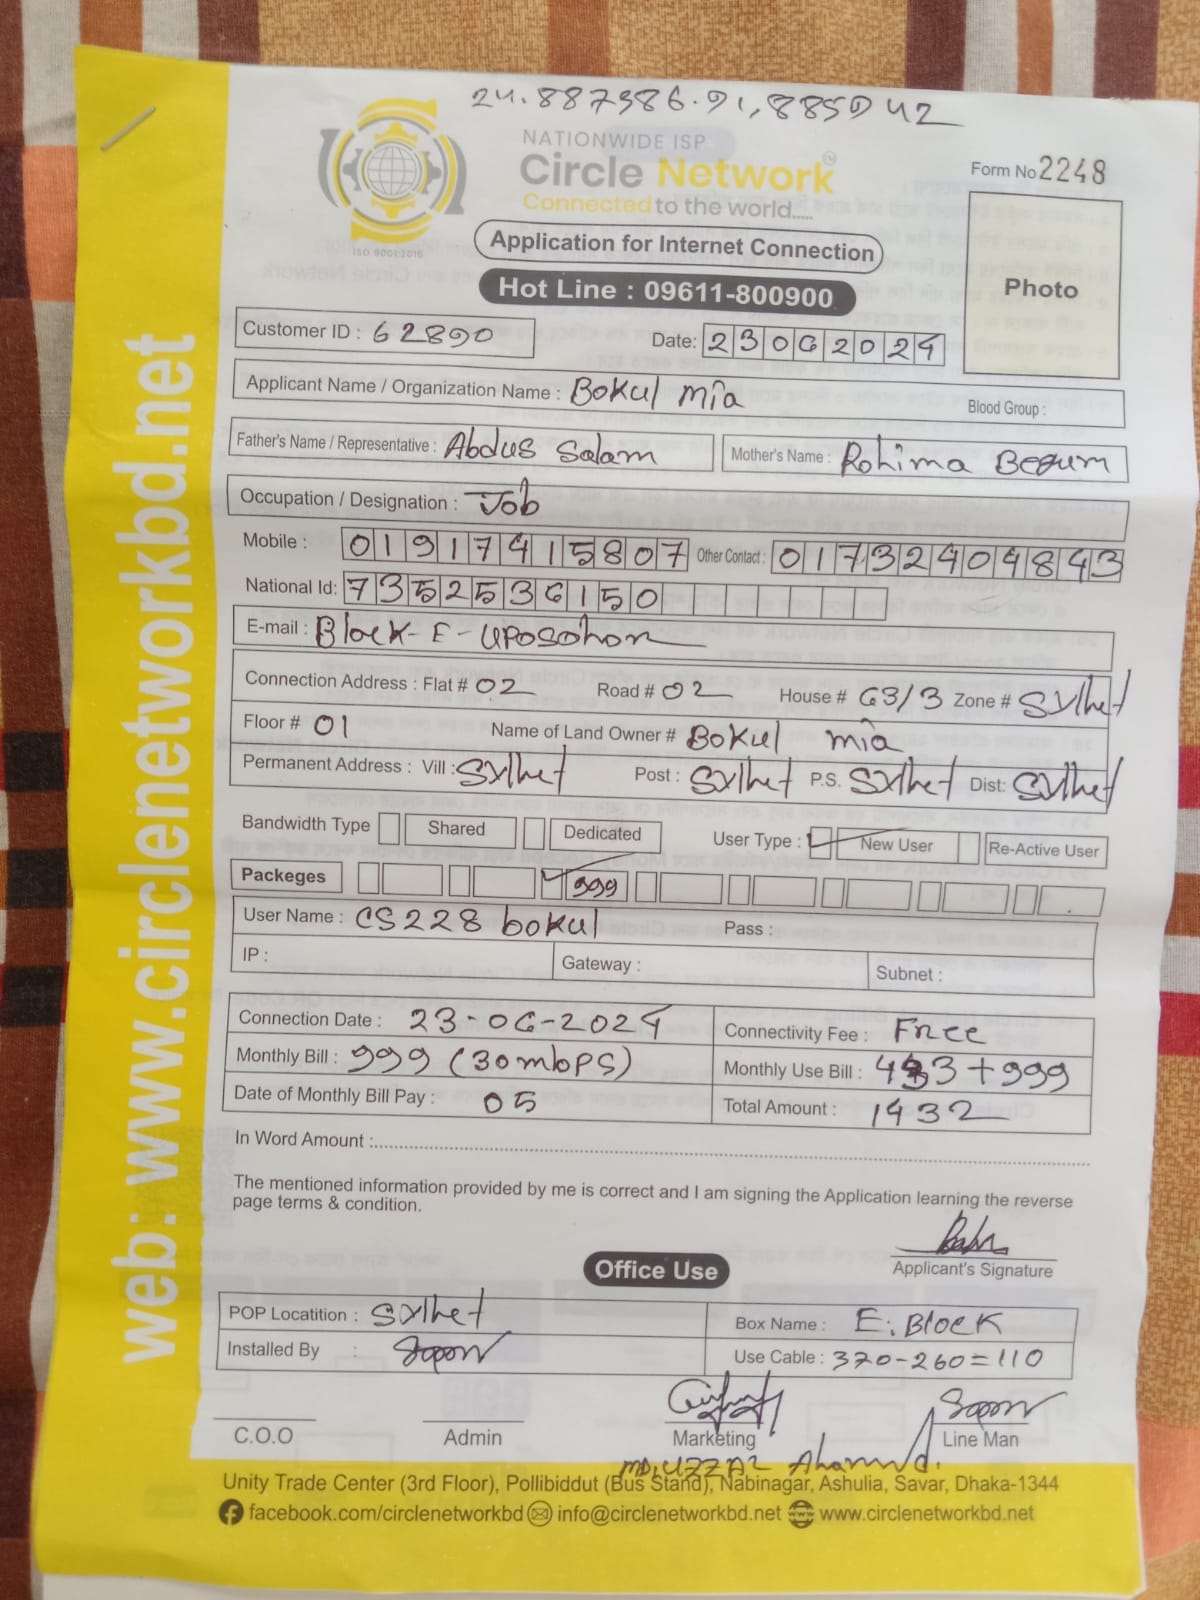 24.887386.91,885942
NATIONWIDE ISP
Circle Network
Connected to the world.....
ISO 9001:2015
Form No 2248
Application for Internet Connection
Hot Line : 09611-800900
Photo
Customer ID : 62890
Date: 23062024
Applicant Name / Organization Name : Bokul mia
Blood Group :
Father's Name / Representative : Abdus Salam
Mother's Name : Rohima Begum
Occupation / Designation : Job
Mobile : 01917415807 Other Contact : 01732404843
National Id: 7352536150
E-mail : Block-E-Uposohon
Connection Address : Flat # 02 Road # 02 House # 63/3 Zone # Sylhet
Floor # 01 Name of Land Owner # Bokul mia
Permanent Address : Vill : Sylhet Post : Sylhet P.S. Sylhet Dist: Sylhet
Bandwidth Type Shared Dedicated User Type : New User Re-Active User
Packeges 999
User Name : CS228 bokul Pass :
IP : Gateway : Subnet :
Connection Date : 23-06-2024 Connectivity Fee : Free
Monthly Bill : 999 (30mbps) Monthly Use Bill : 433+999
Date of Monthly Bill Pay : 05 Total Amount : 1432
In Word Amount :
The mentioned information provided by me is correct and I am signing the Application learning the reverse
page terms & condition.
Applicant's Signature
Office Use
POP Locatition : Sylhet Box Name : E. Block
Installed By : Use Cable : 370-260=110
C.O.O Admin Marketing Line Man
MD. UZZAL Ahammed.
Unity Trade Center (3rd Floor), Pollibiddut (Bus Stand), Nabinagar, Ashulia, Savar, Dhaka-1344
facebook.com/circlenetworkbd info@circlenetworkbd.net www.circlenetworkbd.net
web: www.circlenetworkbd.net